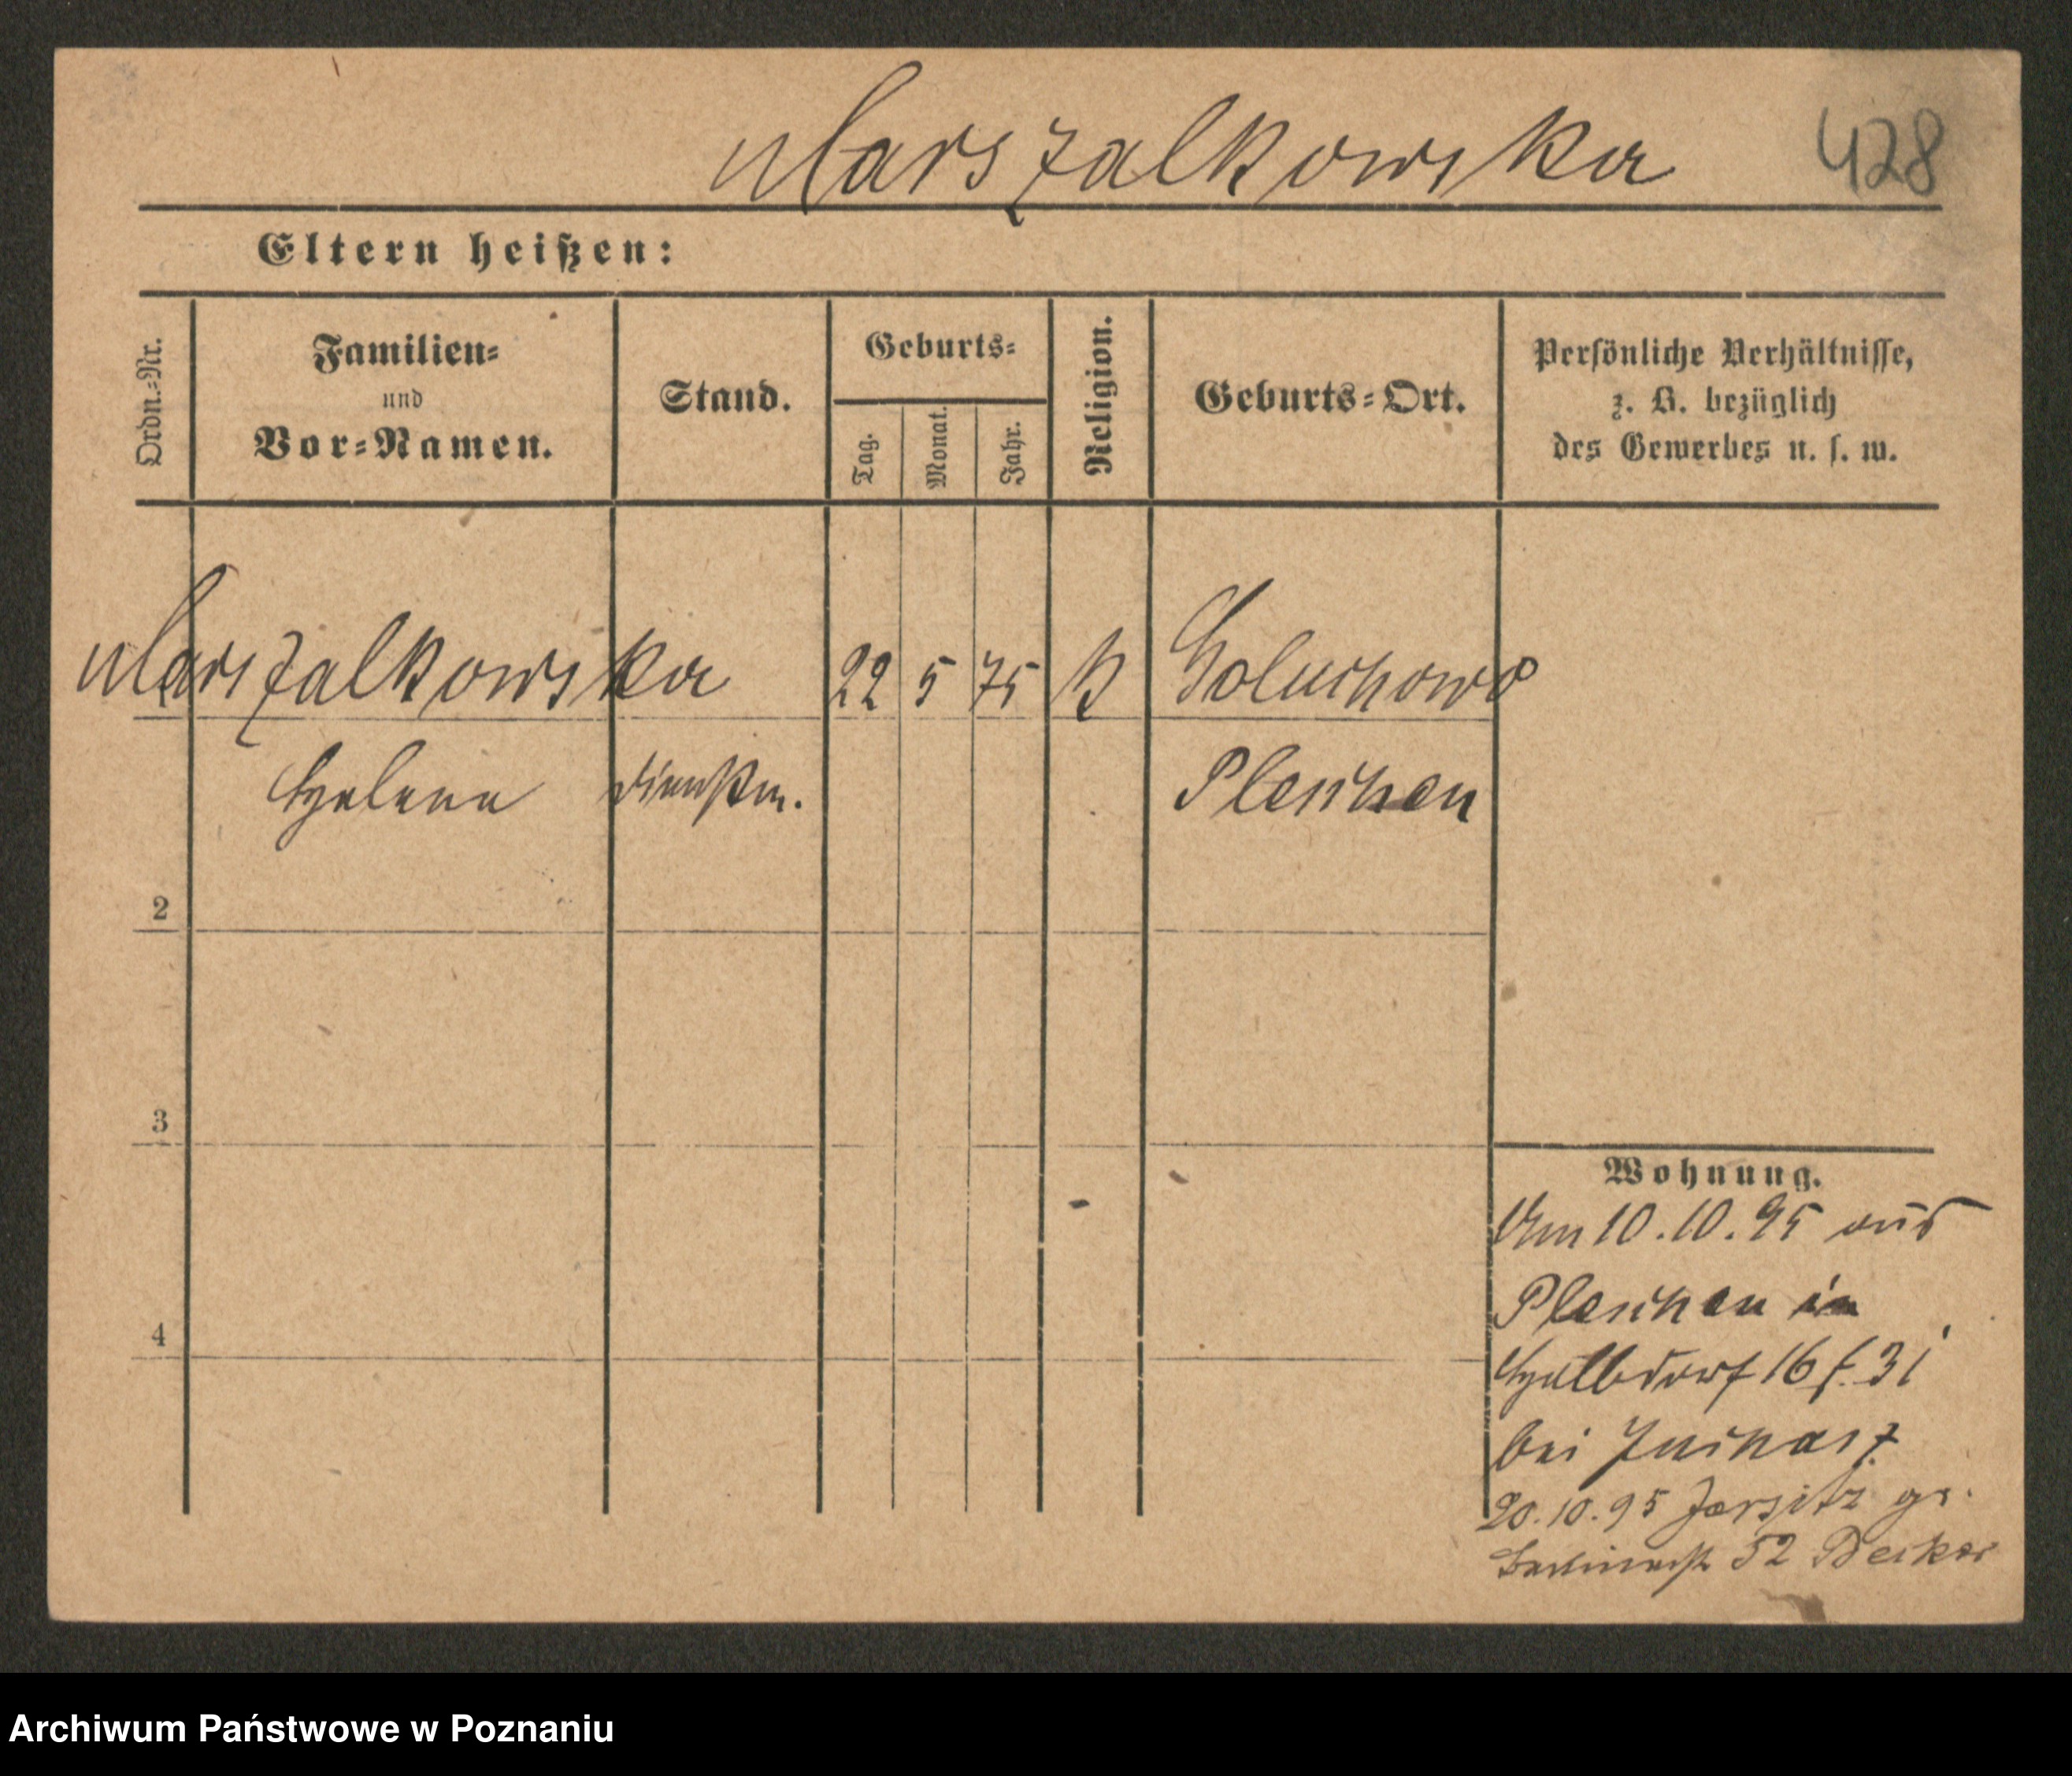 Marszalkowska 428
Eltern heißen:
Ordn.=Nr.
Familien=
und
Vor=Namen.
Stand.
Geburts=
Tag.
Monat.
Jahr.
Religion.
Geburts=Ort.
Persönliche Verhältnisse,
z. B. bezüglich
des Gewerbes u. s. w.
Marszalkowska 22 5 75 k Goluchowo
Helene Dienstm. Pleschen
2
3
4
Wohnung.
Am 10.10.95 aus
Pleschen in
16
bei
20.10.95 Jersitz gr.
Berlinerst 52 Becker
Archiwum Państwowe w Poznaniu